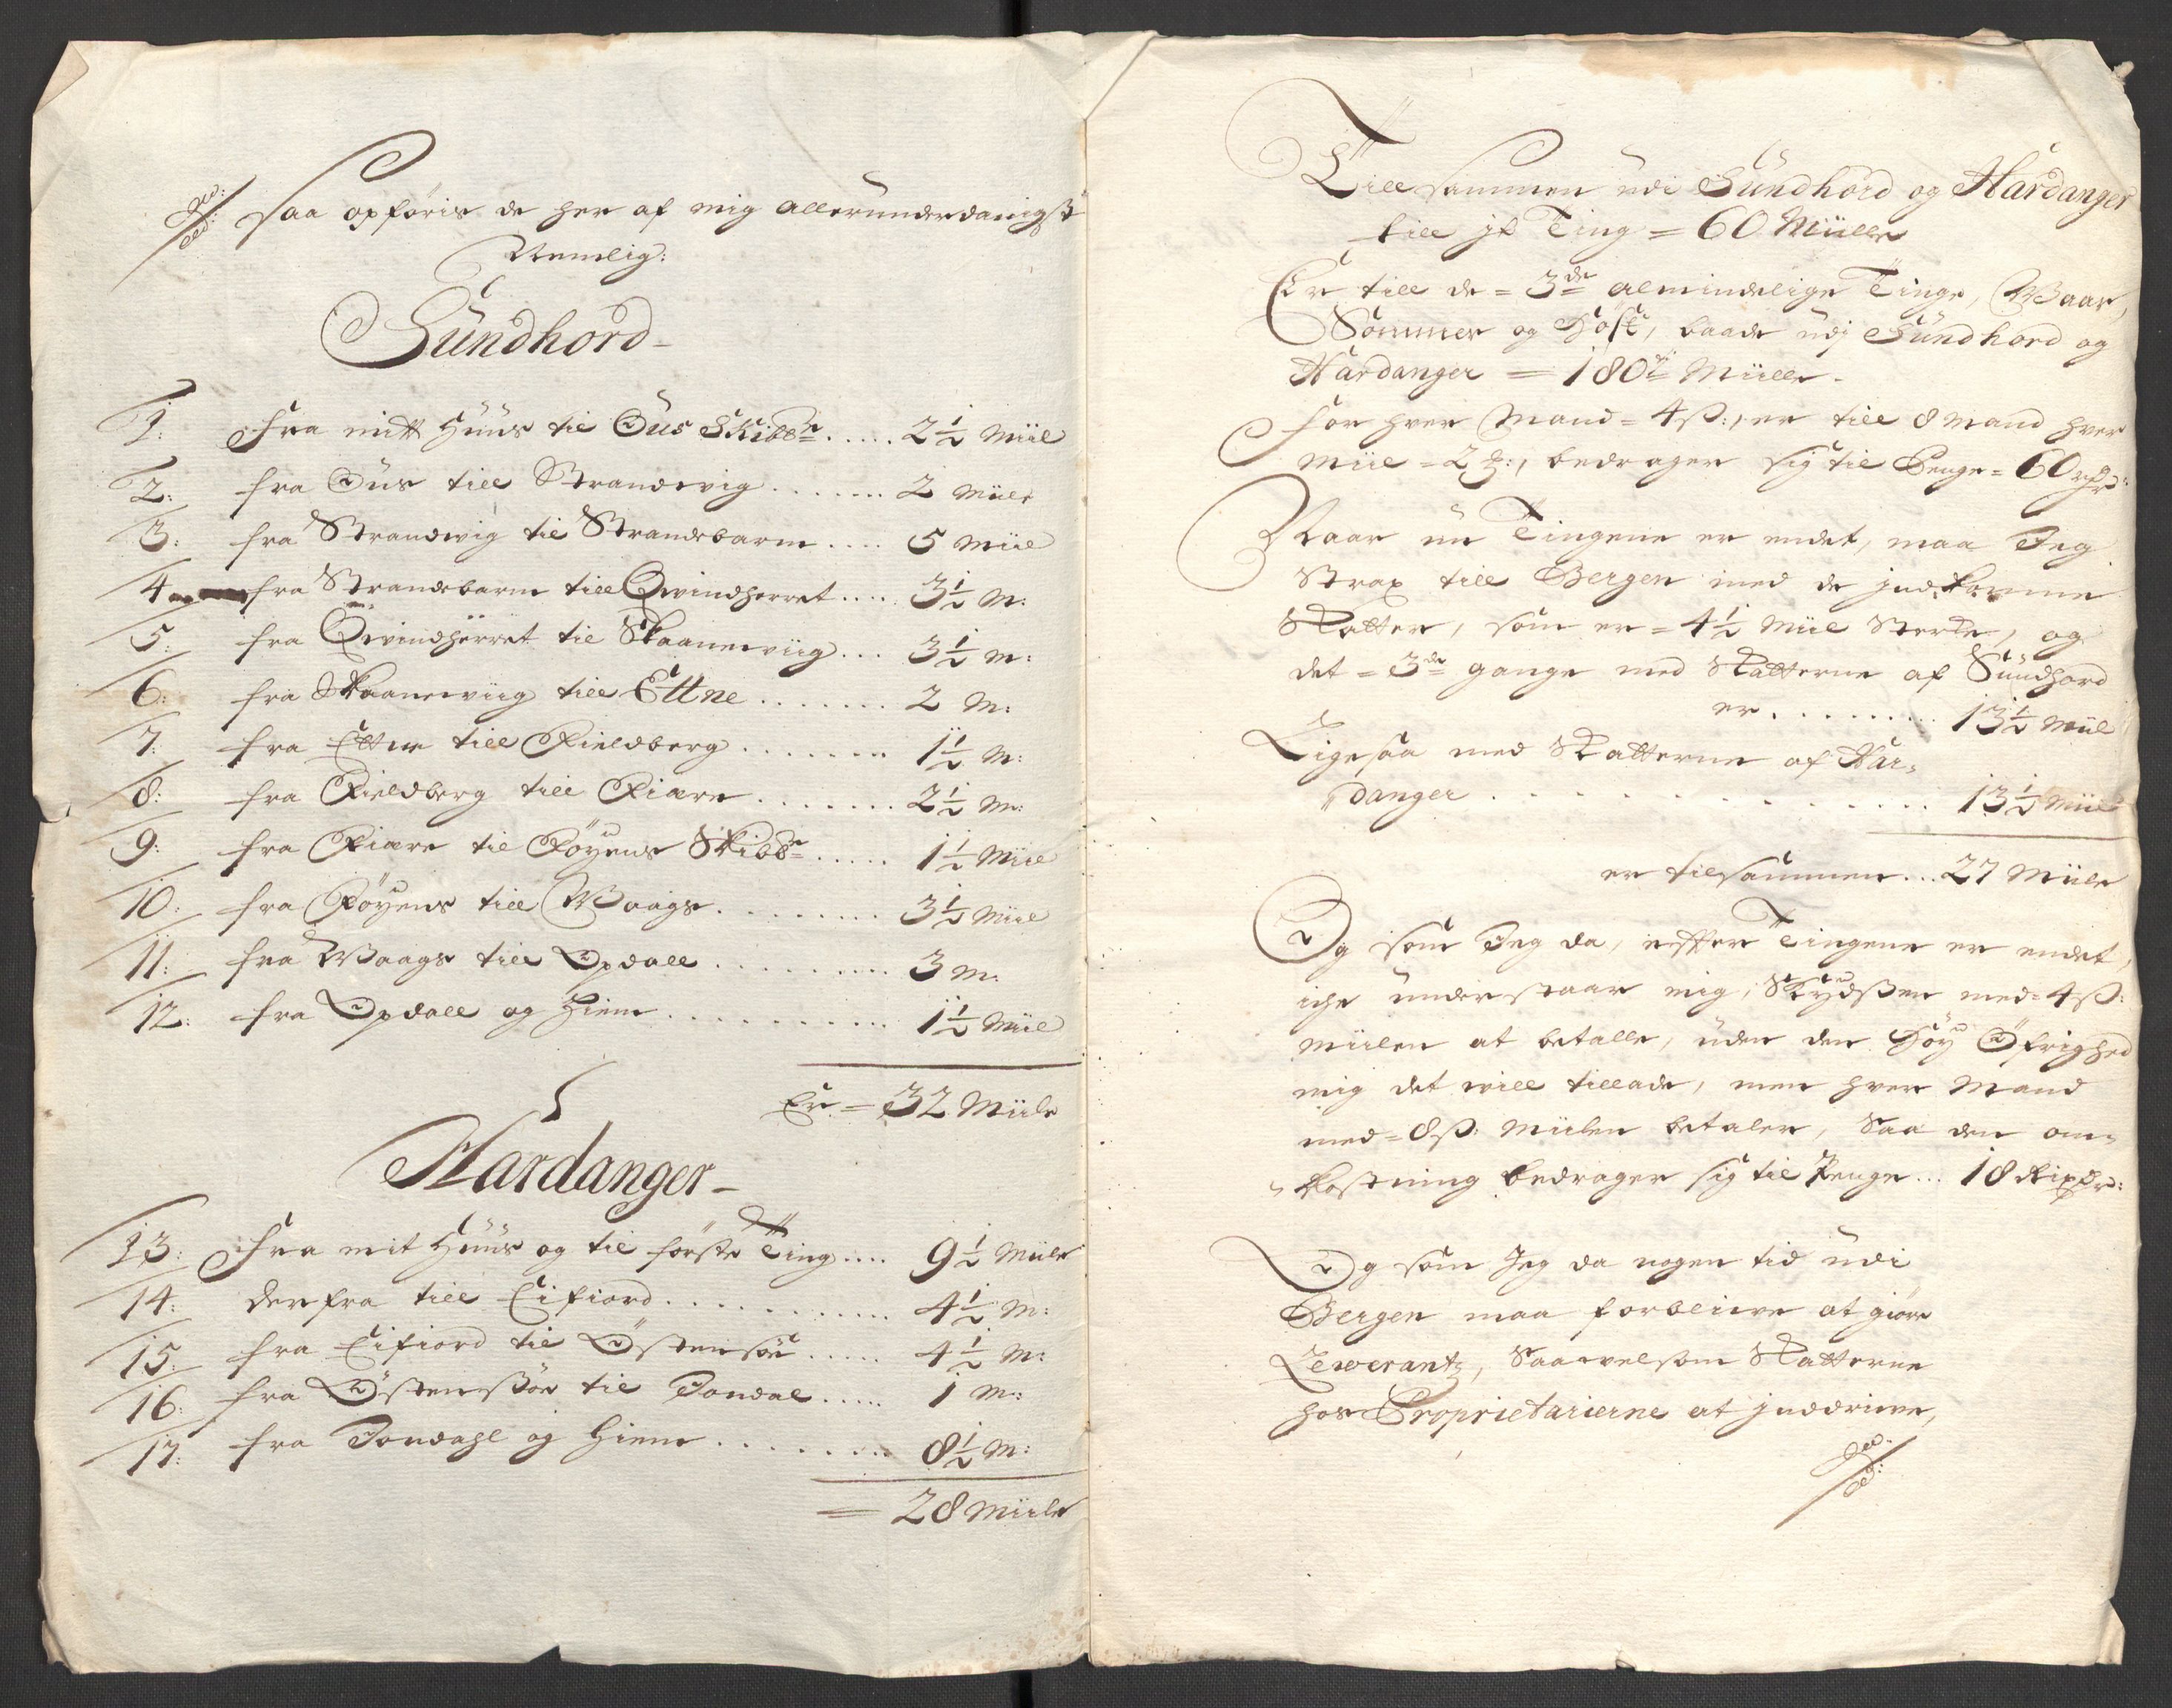 Saa opföris de her af mig allerunderdanigst
Nemlig:
Sundhord
1. Fra mitt Huus til Ous Skibbr. ..... 2½ Miil
2: fra Ous till Strandvig ....... 2 Miile
3: fra Strandvig til Strandebarm .... 5 Miil
4 fra Strandebarm till Qvindherret .... 3½ M:
5: fra Qvindherret til Skaanevüg ... 3½ M:
6: fra Skaanevüg till Ettne ....... 2 M:
7: fra Ettne till Fieldberg ....... 1½ M:
8: fra Fieldberg till Fiære ....... 2½ M:
9: fra Fiære til Föyens Skibbr. ..... 1½ Miil
10: fra Föyens till Waags ......... 3½ Miil
11: fra Waags till Opdall ......... 3 M:
12: fra Opdall og Hiem ........... 1½ Miil
Er = 32 Miile
Hardanger
13: Fra mit Huus og til förste Ting .... 9½ Miile
14: Derfra till Eifiord ........... 4½ M:
15: fra Eifiord til Östensöe ..... 4½ M:
16: fra Östensöe til Jondal ..... 1 M:
17: fra Jondahl og Hiem ........ 8½ M:
= 28 Miile
Till sammen udi Sundhord og Hardanger
till jt Ting = 60 Miille
Er till de = 3de almindelige Tinge, Waar,
Sommer og Höst, baade udj Sundhord og
Hardanger = 180 Miille.
for hver Mand = 4 ß:, er till 8 Mand hver
Miil = 2 ℳ:, bedrager sig til Penge = 60 rdr:
Naar nu Tingene er endet, maa Jeg
Strax till Bergen med de jndkomne
Skatter, som er = 4½ Miil Sterke, og
det = 3de gange med Skatterne af Sundhord
er ........ 13½ Miil
Ligesaa med Skatterne af Har,
danger ................ 13½ Miil
er tilsammen ... 27 Miile
Og som Jeg da, effter Tingene er endet,
iche understaar mig, Skydsen med = 4 ß:
Miilen at betalle, uden den Höy Öfrighed
mig det will tillade, men hver Mand
med = 8 ß: Miilen betaler, Saa den om,
kostning bedrager sig til Penge ... 18 Rixdr:
Og som Jeg da nogen tid udi
Bergen maa forblive at giøre
Lewerantz, Saavelsom Skatterne
hos Proprietarierne at jnddrive,